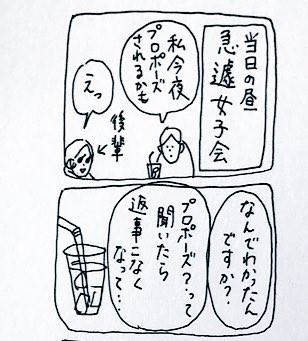 当日の昼
急遽女子会
私今夜
プロポーズ
されるかも
えっ
後輩
なんでわかったん
ですか?
プロポーズ?って
聞いたら
返事こなく
なって…